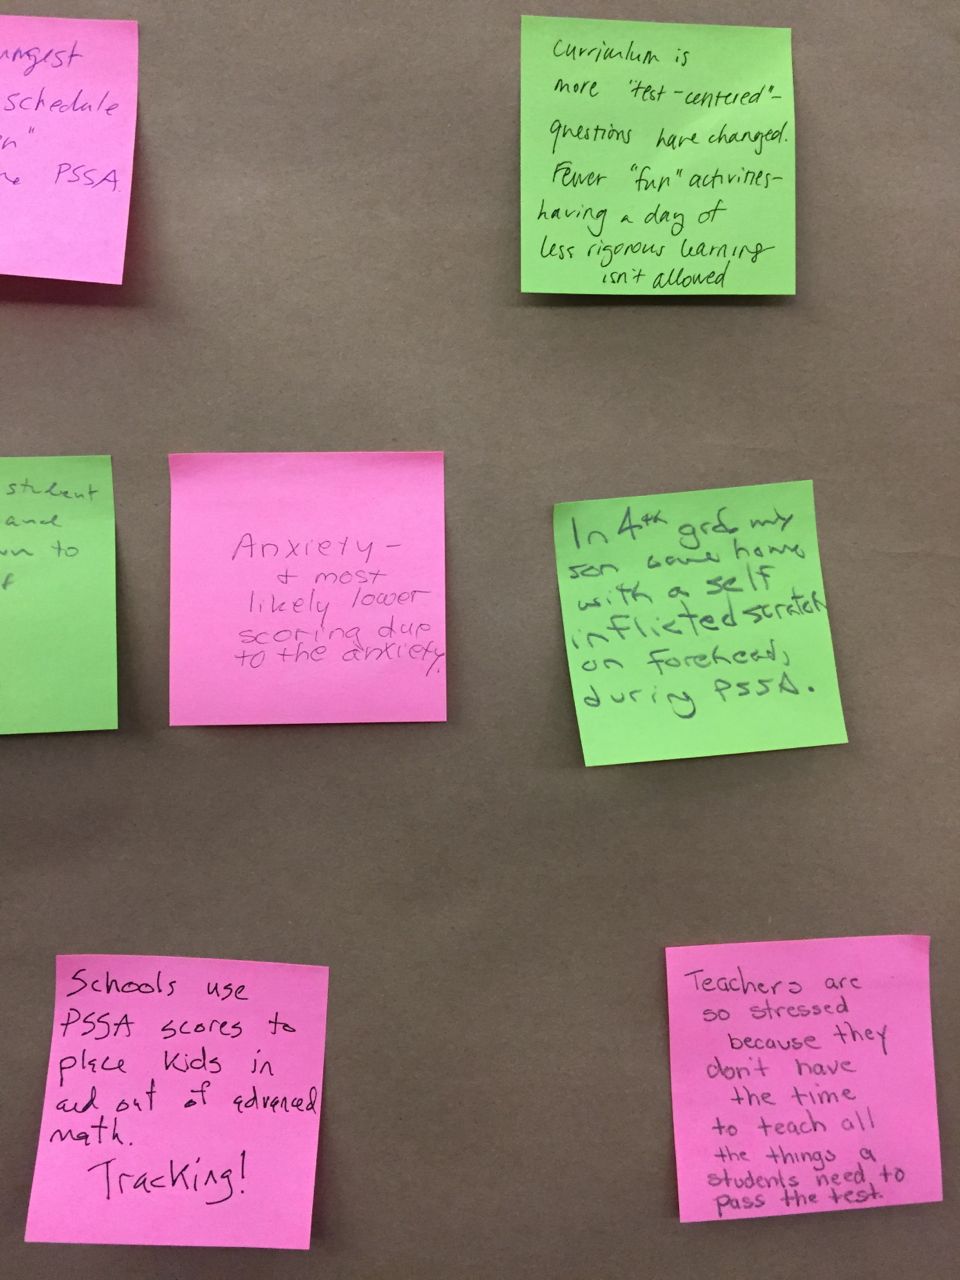 schedule
PSSA.
Curriculum is
more "test-centered"-
questions have changed.
Fewer "fun" activities-
having a day of
less rigorous learning
isn't allowed
student
and
to
Anxiety -
& most
likely lower
scoring due
to the anxiety.
In 4th grd my
son came home
with a self
inflicted scratch
on forehead,
during PSSA.
Schools use
PSSA scores to
place kids in
and out of advanced
math.
Tracking!
Teachers are
so stressed
because they
don't have
the time
to teach all
the things a
students need to
pass the test.